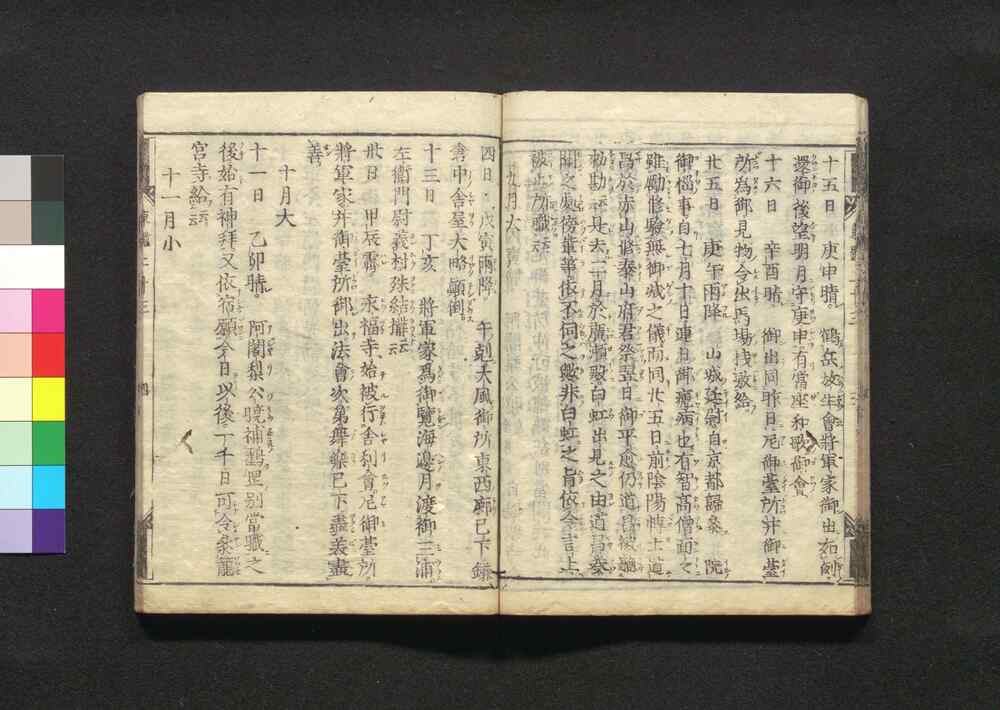 十五日　庚申晴。鶴岳放生會將軍家御出如例
還御後望明月守庚申有當座和歌御會
十六日　辛酉晴　御出同昨日尼御臺所并御臺
所為御見物令出馬場棧敷給
廿五日　庚午雨降　山城廷尉自京都歸參　院
御惱事自七月十日連日御瘧病也有智高僧面々
雖勵修驗無御減之儀而同廿五日前陰陽博士道
昌於赤山修泰山府君祭翌日御平愈仍道昌被
勅勘　是去二月於廣瀬殿白虹出見之由道昌奏
聞之處傍輩等依不同之數非白虹之旨依令言上
被止所職云云
九月大
四日　戊寅雨降　午剋大風御所東西廊已下鎌
倉中舎屋大略顛倒。
十三日　丁亥　將軍家為御覽海邊月渡御三浦
左衛門尉義村殊結構云云
廿日　甲辰霽　永福寺始被行舎利會尼御臺所
將軍家并御臺所御出法會次第舞樂已下盡美盡
善
十月大
十一日　乙卯晴。阿闍梨公曉補鶴岡別當職之
後始有神拜又依宿願今日以後一千日可令參籠
宮寺給云云
十一月小